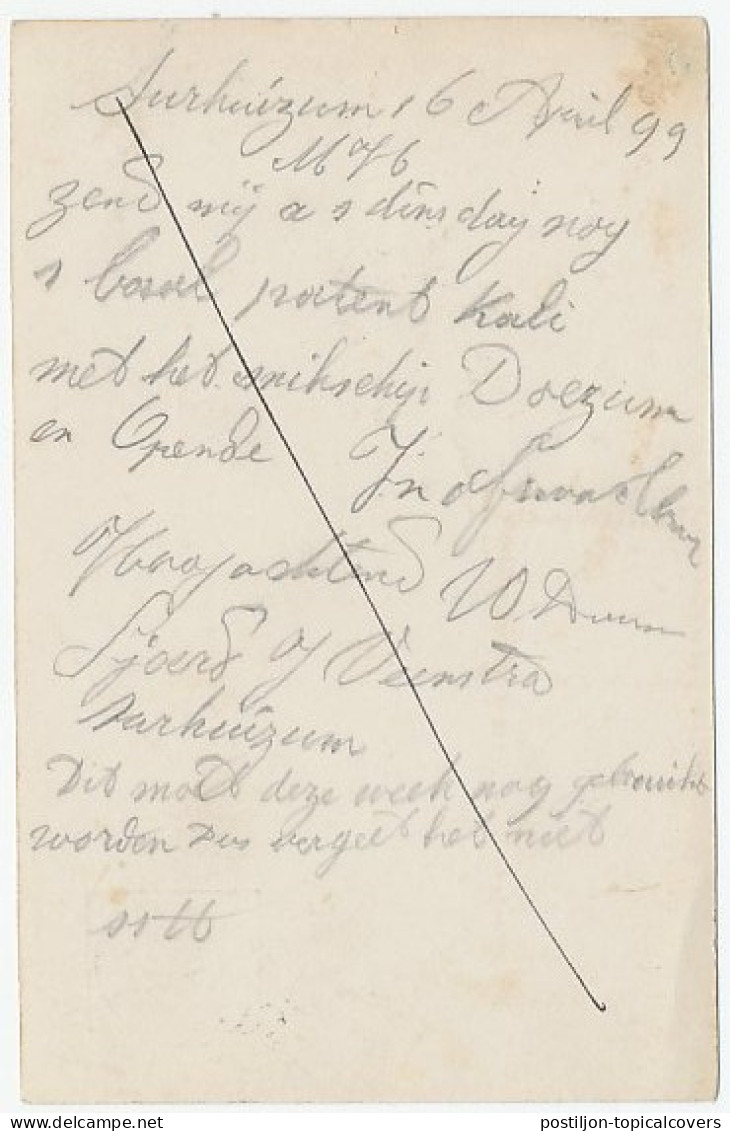 Surhuizum 16 April 99
M H
zend mij a s dinsdag nog
1 baal patent Kali
met het snikschip Doezum
en Opende In afwachting
Hoogachtend U Dwn
Sjoerd J Veenstra
Surhuizum
Dit moet deze week nog gebruikt
worden Dus vergeet het niet
postiljon-topicalcovers